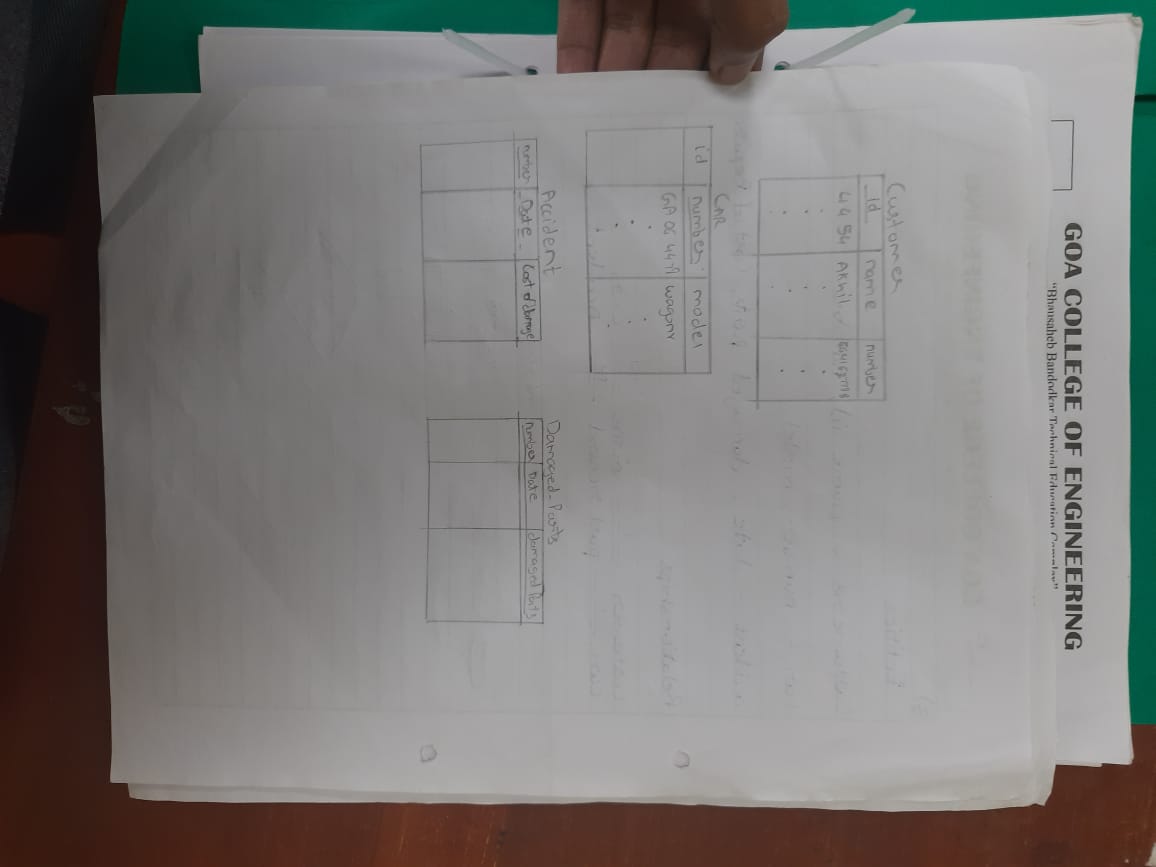 GOA COLLEGE OF ENGINEERING
"Bhausaheb Bandodkar Technical Education Complex"
Customer
id name number
4454 Akhil
CAR
id number model
GA 06 4479 wagonr
Accident
number Date Cost of damage
Damaged-Parts
number Date damaged Parts